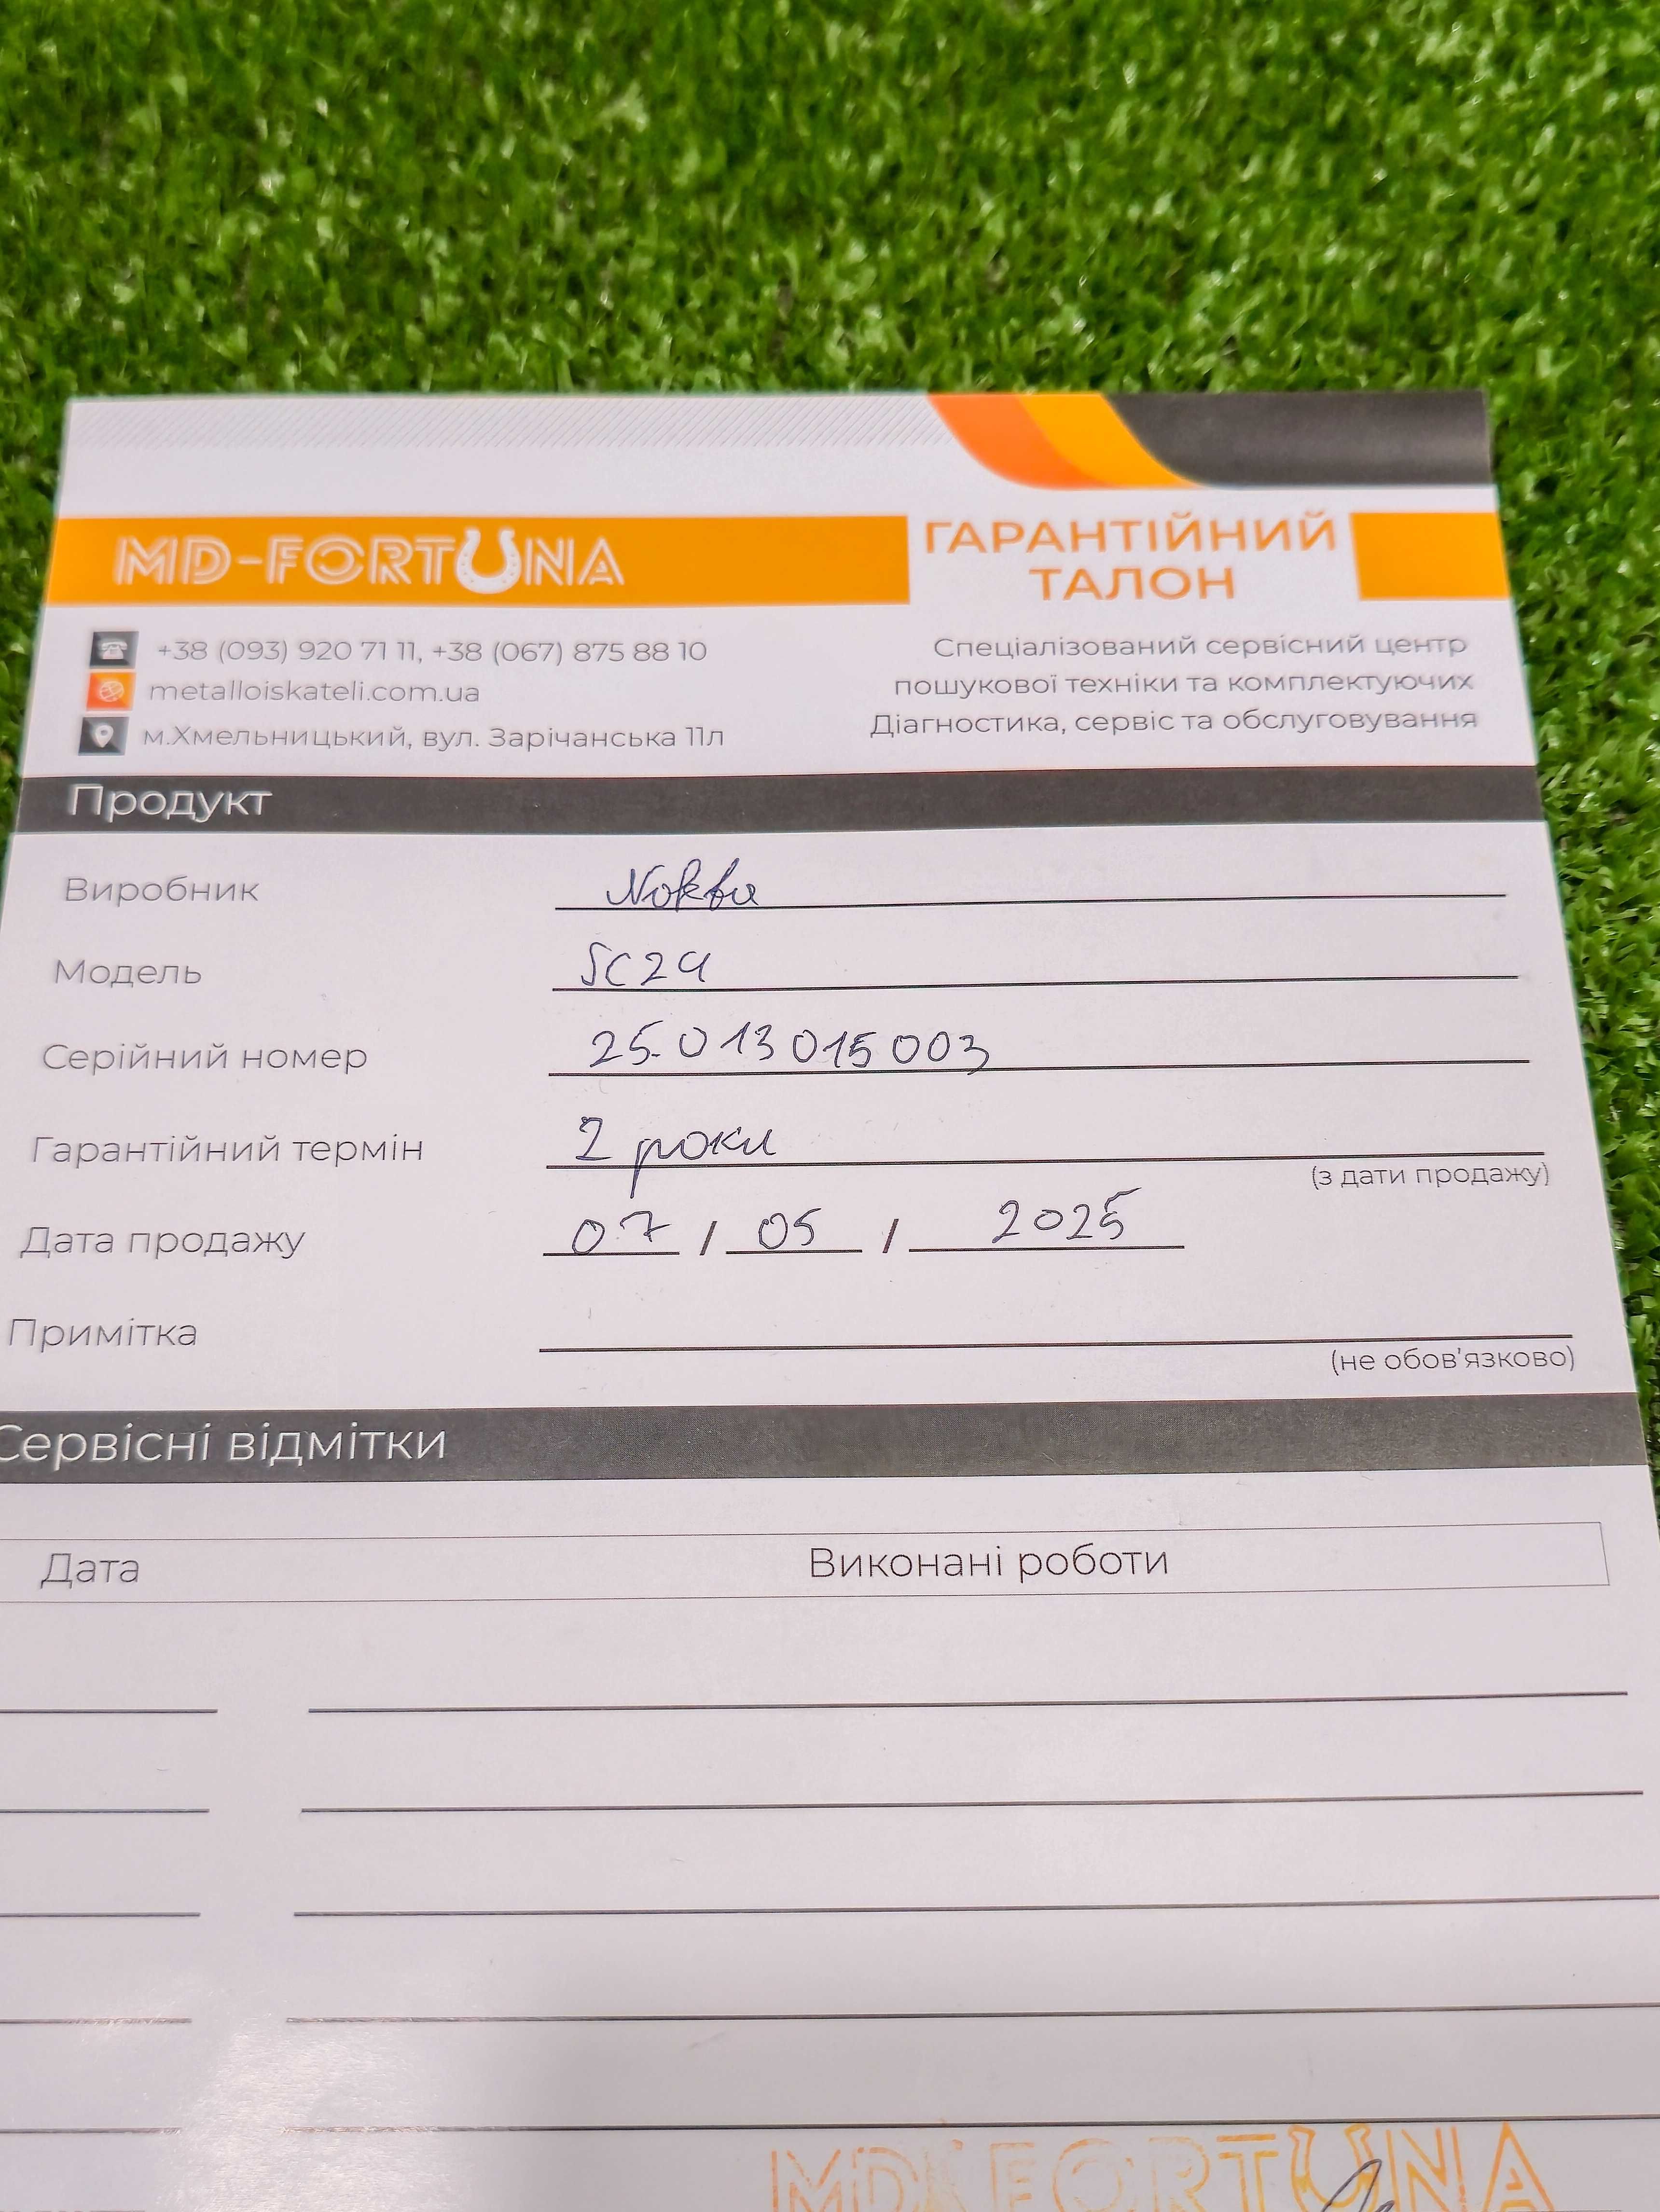 MD-FORTUNA
ГАРАНТІЙНИЙ
ТАЛОН
+38 (093) 920 71 11, +38 (067) 875 88 10
metalloiskateli.com.ua
м.Хмельницький, вул. Зарічанська 11л
Спеціалізований сервісний центр
пошукової техніки та комплектуючих
Діагностика, сервіс та обслуговування
Продукт
Виробник Nokta
Модель SC24
Серійний номер 25.013015003
Гарантійний термін 2 роки
(з дати продажу)
Дата продажу 07 / 05 / 2025
Примітка
(не обов'язково)
Сервісні відмітки
Дата Виконані роботи
MD-FORTUNA